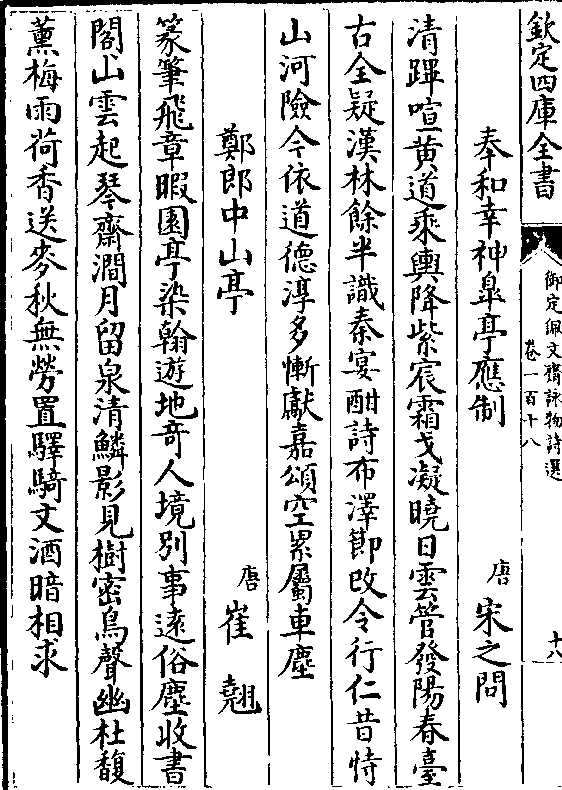 欽定四庫全書
御定佩文齋詠物詩選
卷一百十八
十八
奉和幸神臯亭應制
唐 宋之問
清蹕喧黄道乘輿降紫宸霜戈凝曉日雲管發陽春臺
古全疑漢林餘半識秦宴酣詩布澤節改令行仁昔恃
山河險今依道德淳多慚獻嘉頌空累屬車塵
鄭郎中山亭
唐 崔翹
篆筆飛章暇園亭染翰遊地竒人境別事逺俗塵收書
閣山雲起琴齋澗月留泉清鱗影見樹密鳥聲幽杜馥
薫梅雨荷香送麥秋無勞置驛騎文酒暗相求